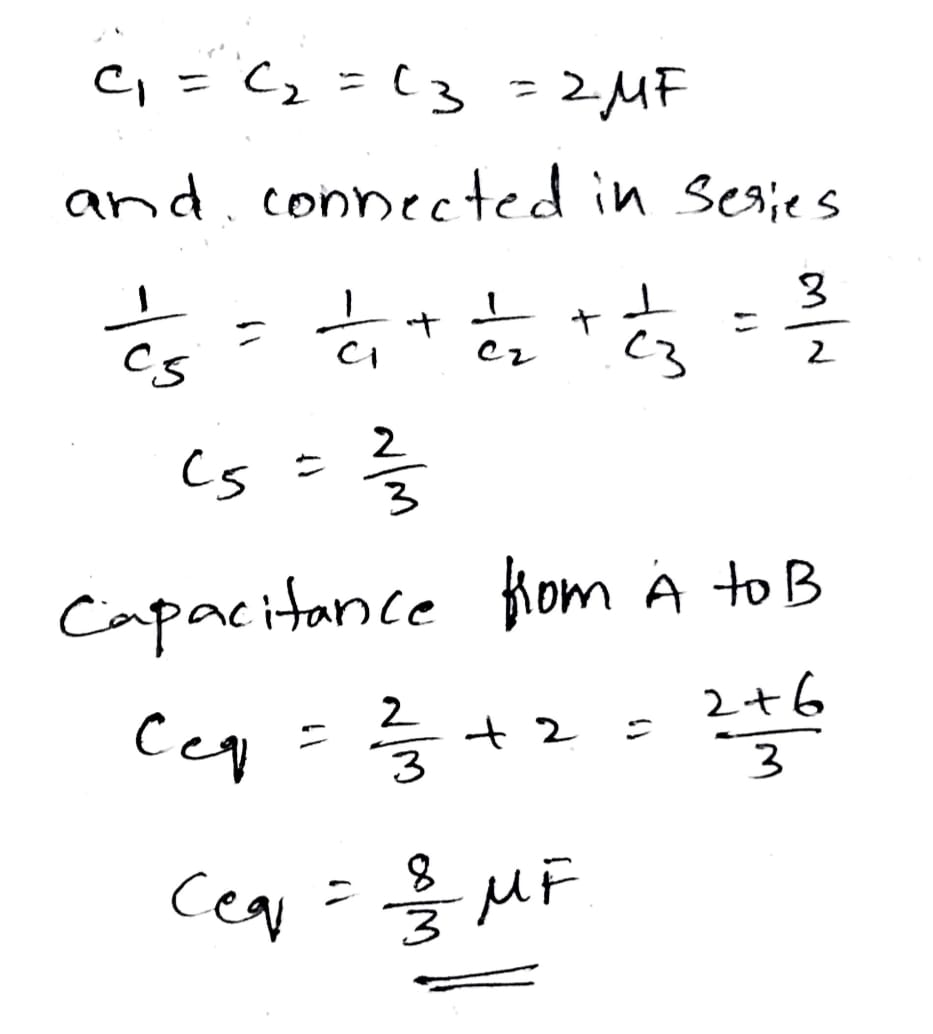 C₁ = C₂ = C₃ = 2 μF
and connected in series
1/C₅ = 1/C₁ + 1/C₂ + 1/C₃ = 3/2
C₅ = 2/3
Capacitance from A to B
Ceq = 2/3 + 2 = 2+6/3
Ceq = 8/3 μF